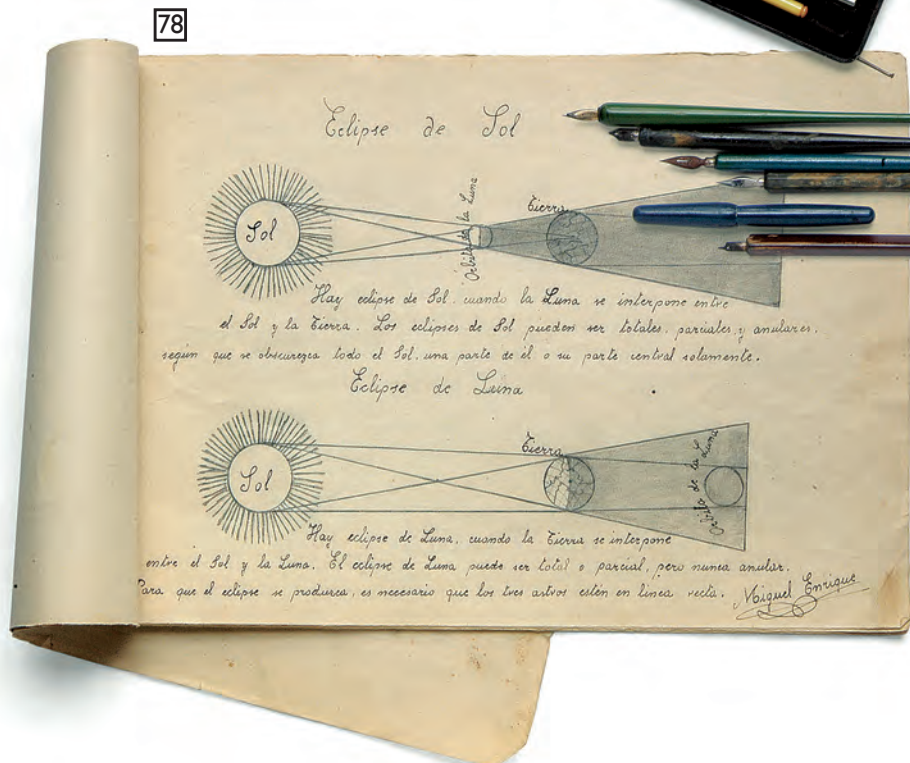 78
Eclipse de Sol
Sol
Órbita de la Luna
Tierra
Hay eclipse de Sol, cuando la Luna se interpone entre
el Sol y la Tierra. Los eclipses de Sol pueden ser totales, parciales, y anulares,
según que se obscurezca todo el Sol, una parte de él o su parte central solamente.
Eclipse de Luna
Sol
Tierra
Orbita de la Luna
Hay eclipse de Luna, cuando la Tierra se interpone
entre el Sol y la Luna. El eclipse de Luna puede ser total o parcial, pero nunca anular.
Para que el eclipse se produzca, es necesario que los tres astros estén en línea recta.
Miguel Enrique